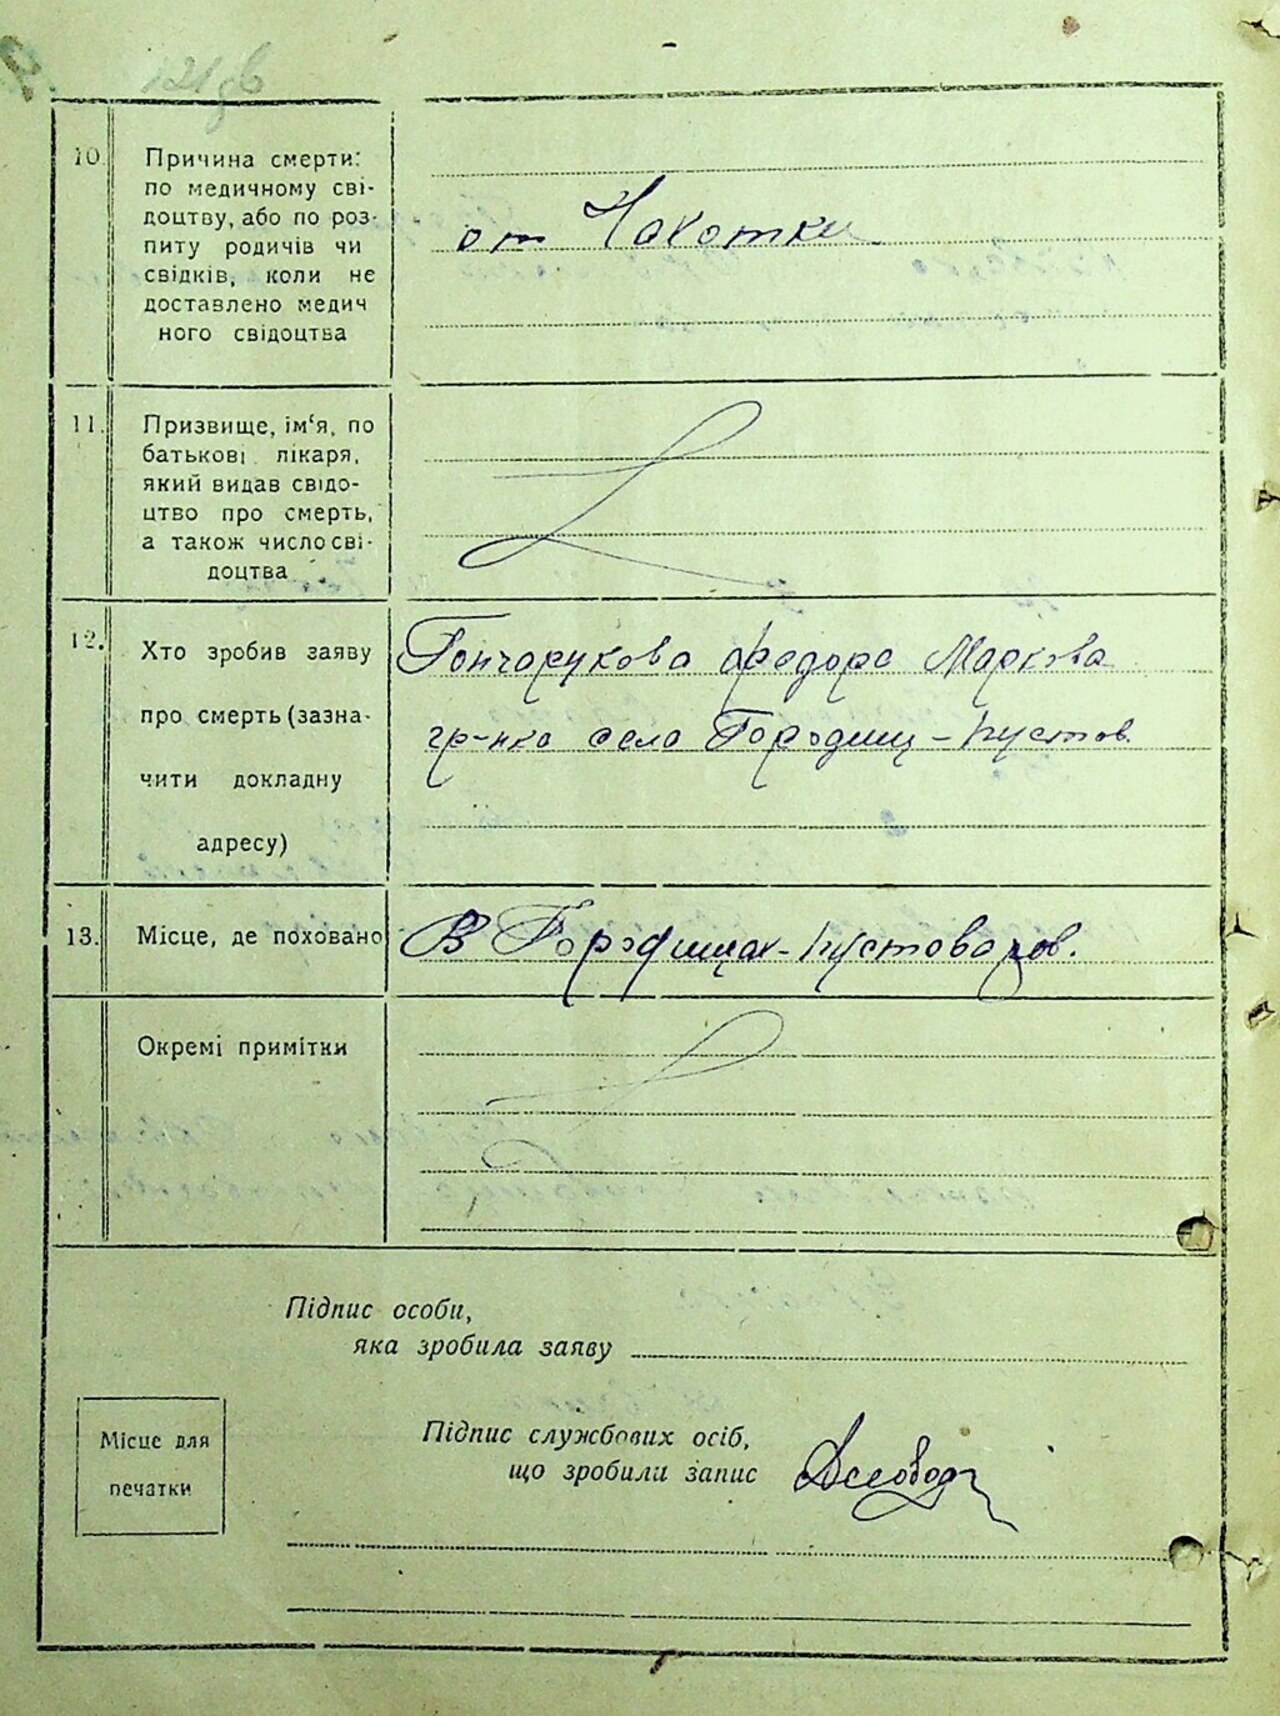 121 зв
10. Причина смерти:
по медичному сві-
доцтву, або по роз-
питу родичів чи
свідків, коли не
доставлено медич
ного свідоцтва
от Чахотки
11. Призвище, ім‘я, по
батькові лікаря,
який видав свідо-
цтво про смерть,
а також число сві-
доцтва
12. Хто зробив заяву
про смерть (зазна-
чити докладну
адресу)
Гончарукова Федора Маркова
гр-нка села Городищ-Пустов.
13. Місце, де поховано
В Городищах-Пустоваров.
Окремі примітки
Підпис особи,
яка зробила заяву
Місце для
печатки
Підпис службових осіб,
що зробили запис